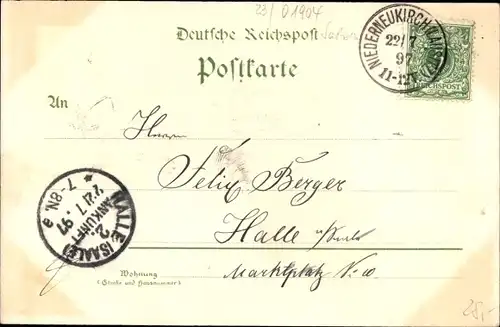 23/ 01904
Deutsche Reichspost
Postkarte
NIEDERNEUKIRCH (LAUSITZ)
22/7
97
11-12V.
REICHSPOST
An
Herrn
Felix Berger
Halle a/Saale
Marktplatz No 10
Wohnung
(Straße und Hausnummer)
HALLE (SAALE)
ANKUNFT
2
22/7.97
7-8N.
25,-